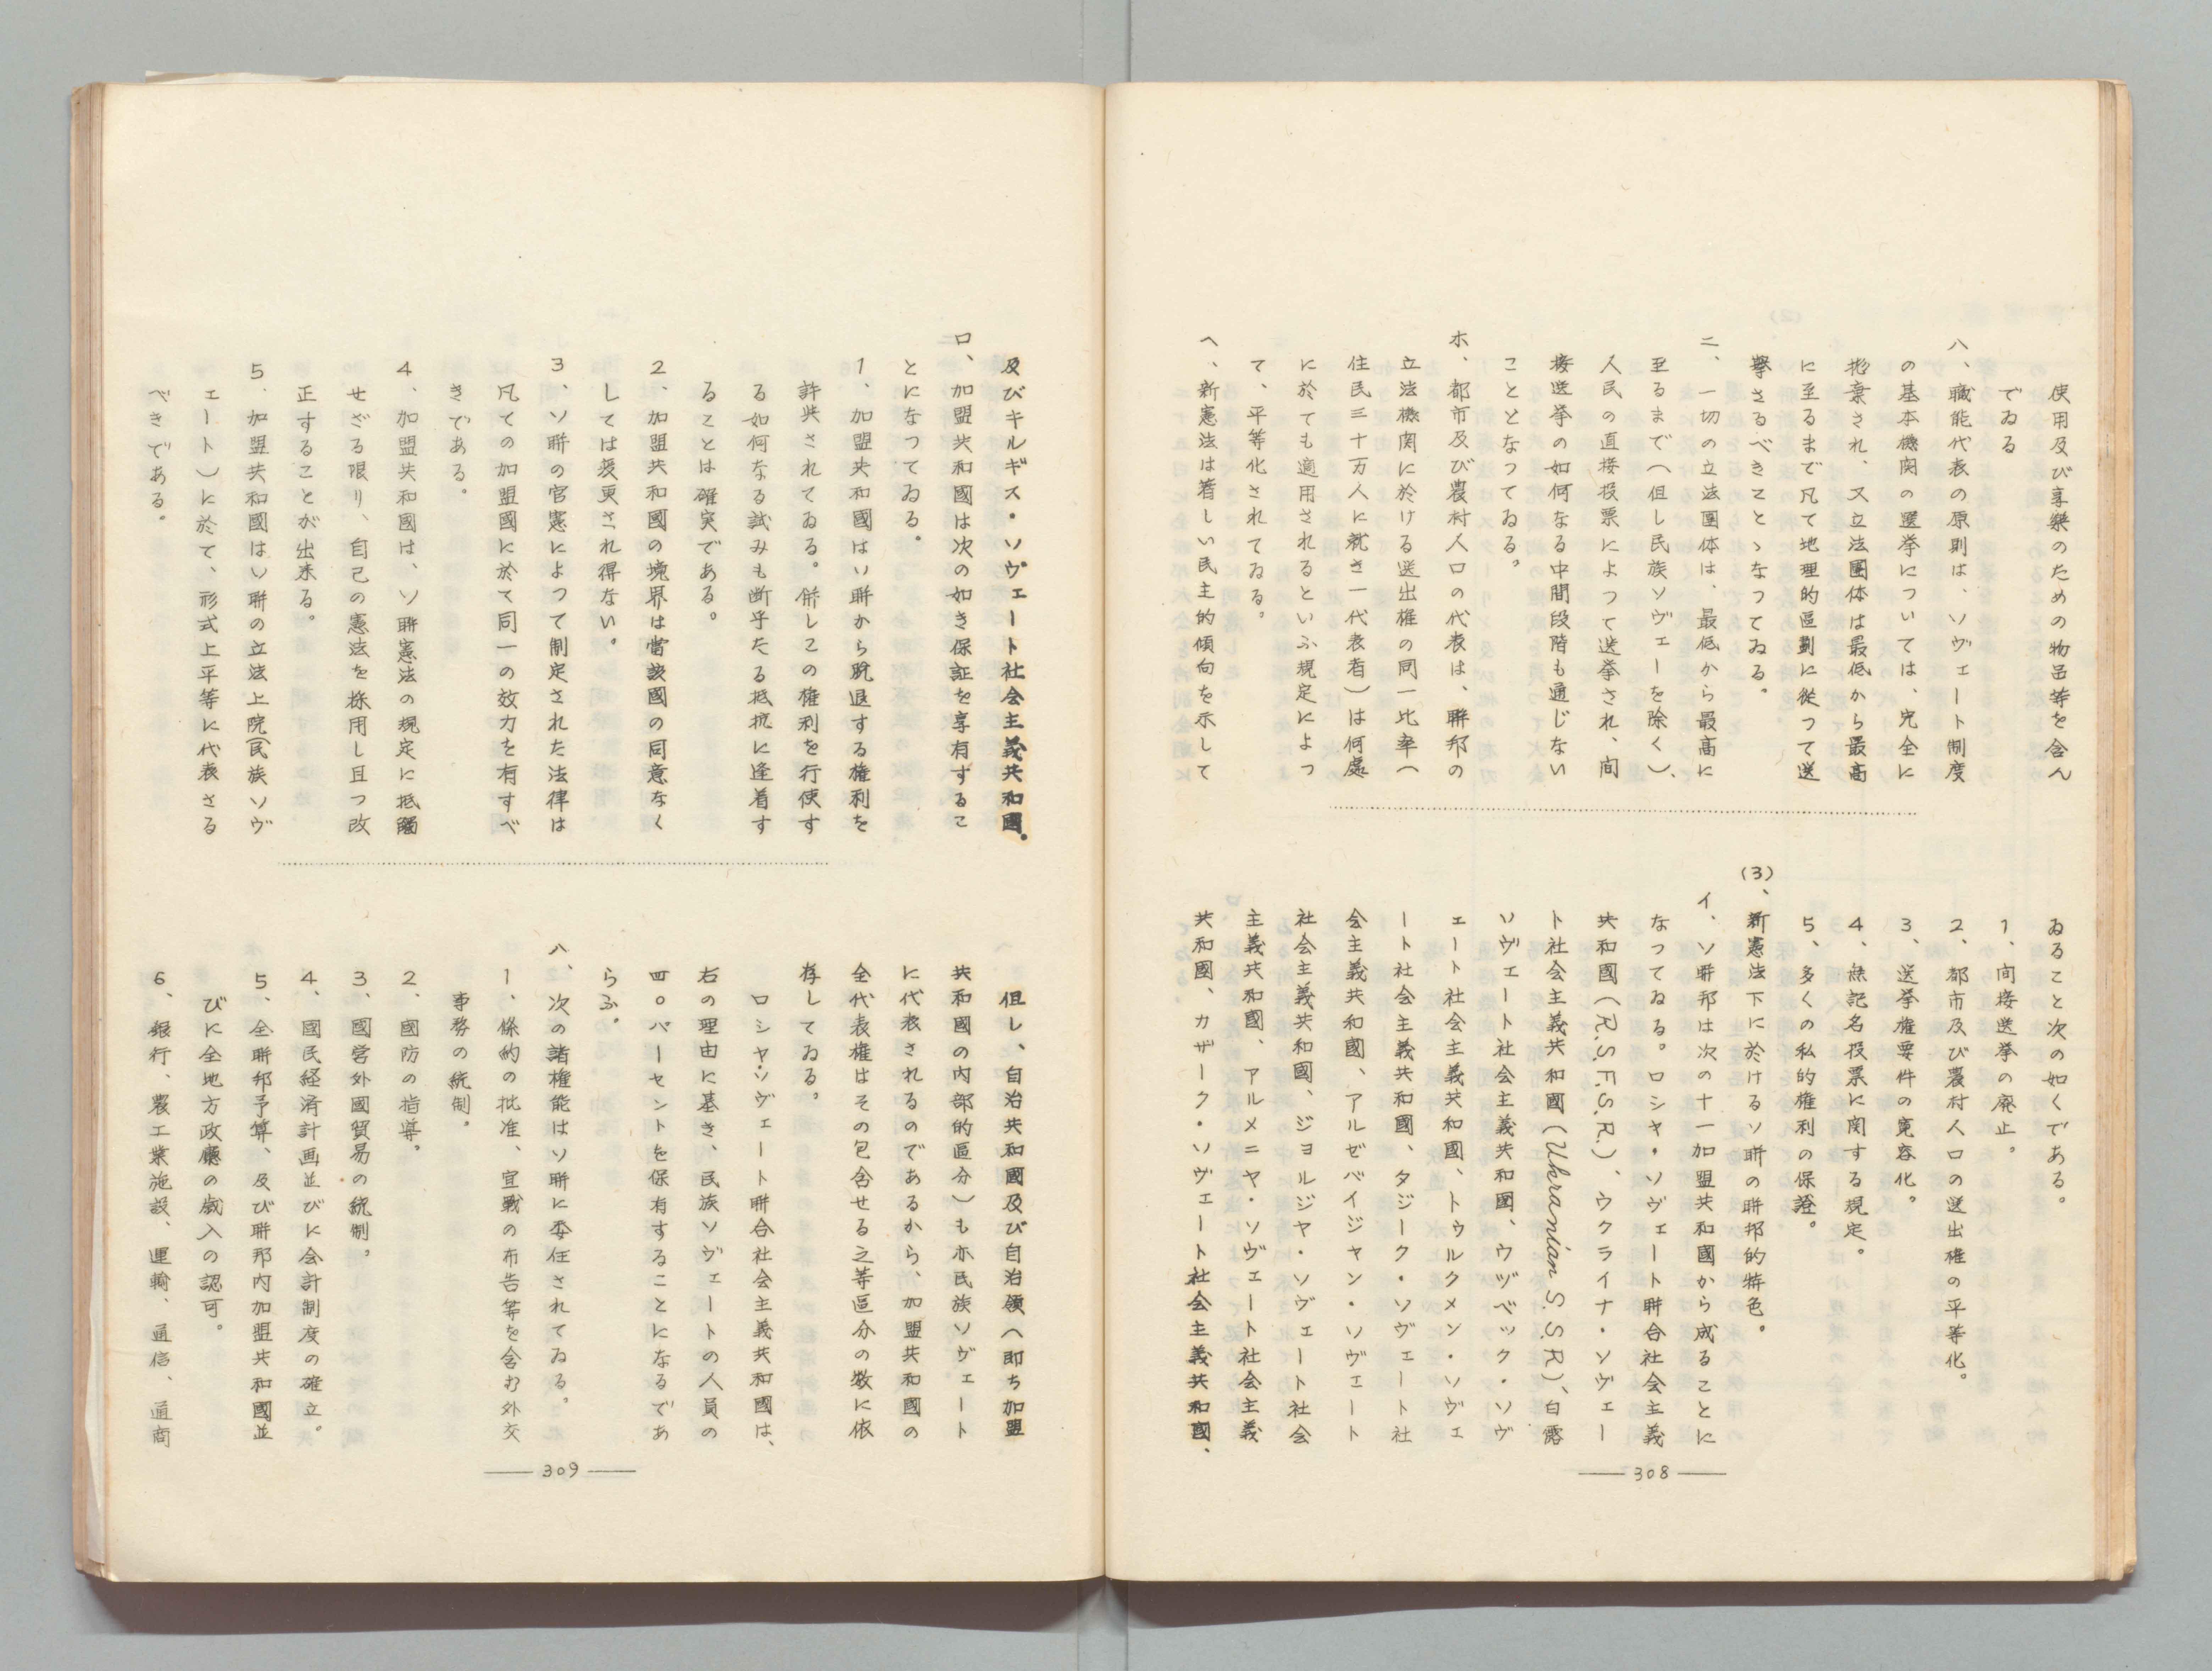 使用及び享樂のための物品等を含ん
でゐる
ハ、職能代表の原則は、ソヴェート制度
の基本機関の選挙については、完全に
抛棄され、又立法團体は最低から最高
に至るまで凡て地理的區劃に從つて選
擧さるべきことゝなつてゐる。
ニ、一切の立法團体は、最低から最高に
至るまで（但し民族ソヴェーを除く）、
人民の直接投票によつて選挙され、間
接選挙の如何なる中間段階も通じない
こととなつてゐる。
ホ、都市及び農村人口の代表は、聯邦の
立法機関に於ける選出権の同一比率（
住民三十万人に就き一代表者）は何處
に於ても適用されるといふ規定によつ
て、平等化されてゐる。
ヘ、新憲法は著しい民主的傾向を示して
ゐること次の如くである。
1、间接選挙の廃止。
2、都市及び農村人口の選出権の平等化。
3、選挙権要件の寛容化。
4、無記名投票に関する規定。
5、多くの私的権利の保證。
(3)、新憲法下に於けるソ聯の聯邦的特色。
イ、ソ聯邦は次の十一加盟共和國から成ることに
なつてゐる。ロシヤ・ソヴェート聯合社会主義
共和國（R.S.F.S.R.）、ウクライナ・ソヴェー
ト社会主義共和國（Ukranian S.S.R）、白露
ソヴェート社会主義共和國、ウヅベック・ソヴ
ェート社会主義共和國、トゥルクメン・ソヴェ
ート社会主義共和國、タジーク・ソヴェート社
会主義共和國、アルゼバイジャン・ソヴェート
社会主義共和國、ジョルジヤ・ソヴェート社会
主義共和國、アルメニヤ・ソヴェート社会主義
共和國、カザーク・ソヴェート社会主義共和國、
— 308 —
及びキルギス・ソヴェート社会主義共和國。
ロ、加盟共和國は次の如き保証を享有するこ
とになつてゐる。
1、加盟共和國はソ聯から脱退する権利を
許與されてゐる。併しこの権利を行使す
る如何なる試みも断乎たる抵抗に逢着す
ることは確実である。
2、加盟共和國の境界は當該國の同意なく
しては変更され得ない。
3、ソ聯の官憲によつて制定された法律は
凡ての加盟國に於て同一の效力を有すべ
きである。
4、加盟共和國は、ソ聯憲法の規定に抵觸
せざる限り、自己の憲法を採用し且つ改
正することが出来る。
5、加盟共和國はソ聯の立法上院（民族ソヴ
ェート）に於て、形式上平等に代表さる
べきである。
但し、自治共和國及び自治領（即ち加盟
共和國の内部的區分）も亦民族ソヴェート
に代表されるのであるから、加盟共和國の
全代表権はその包含せる之等區分の数に依
存してゐる。
ロシヤ・ソヴェート聯合社会主義共和國は、
右の理由に基き、民族ソヴェートの人員の
四〇パーセントを保有することになるであ
らふ。
ハ、次の諸権能はソ聯に委任されてゐる。
1、條約の批准、宣戰の布告等を含む外交
事務の統制。
2、國防の指導。
3、國営外國貿易の統制。
4、國民経済計画並びに会計制度の確立。
5、全聯邦予算、及び聯邦内加盟共和國並
びに全地方政廳の歳入の認可。
6、銀行、農工業施設、運輸、通信、通商
— 309 —